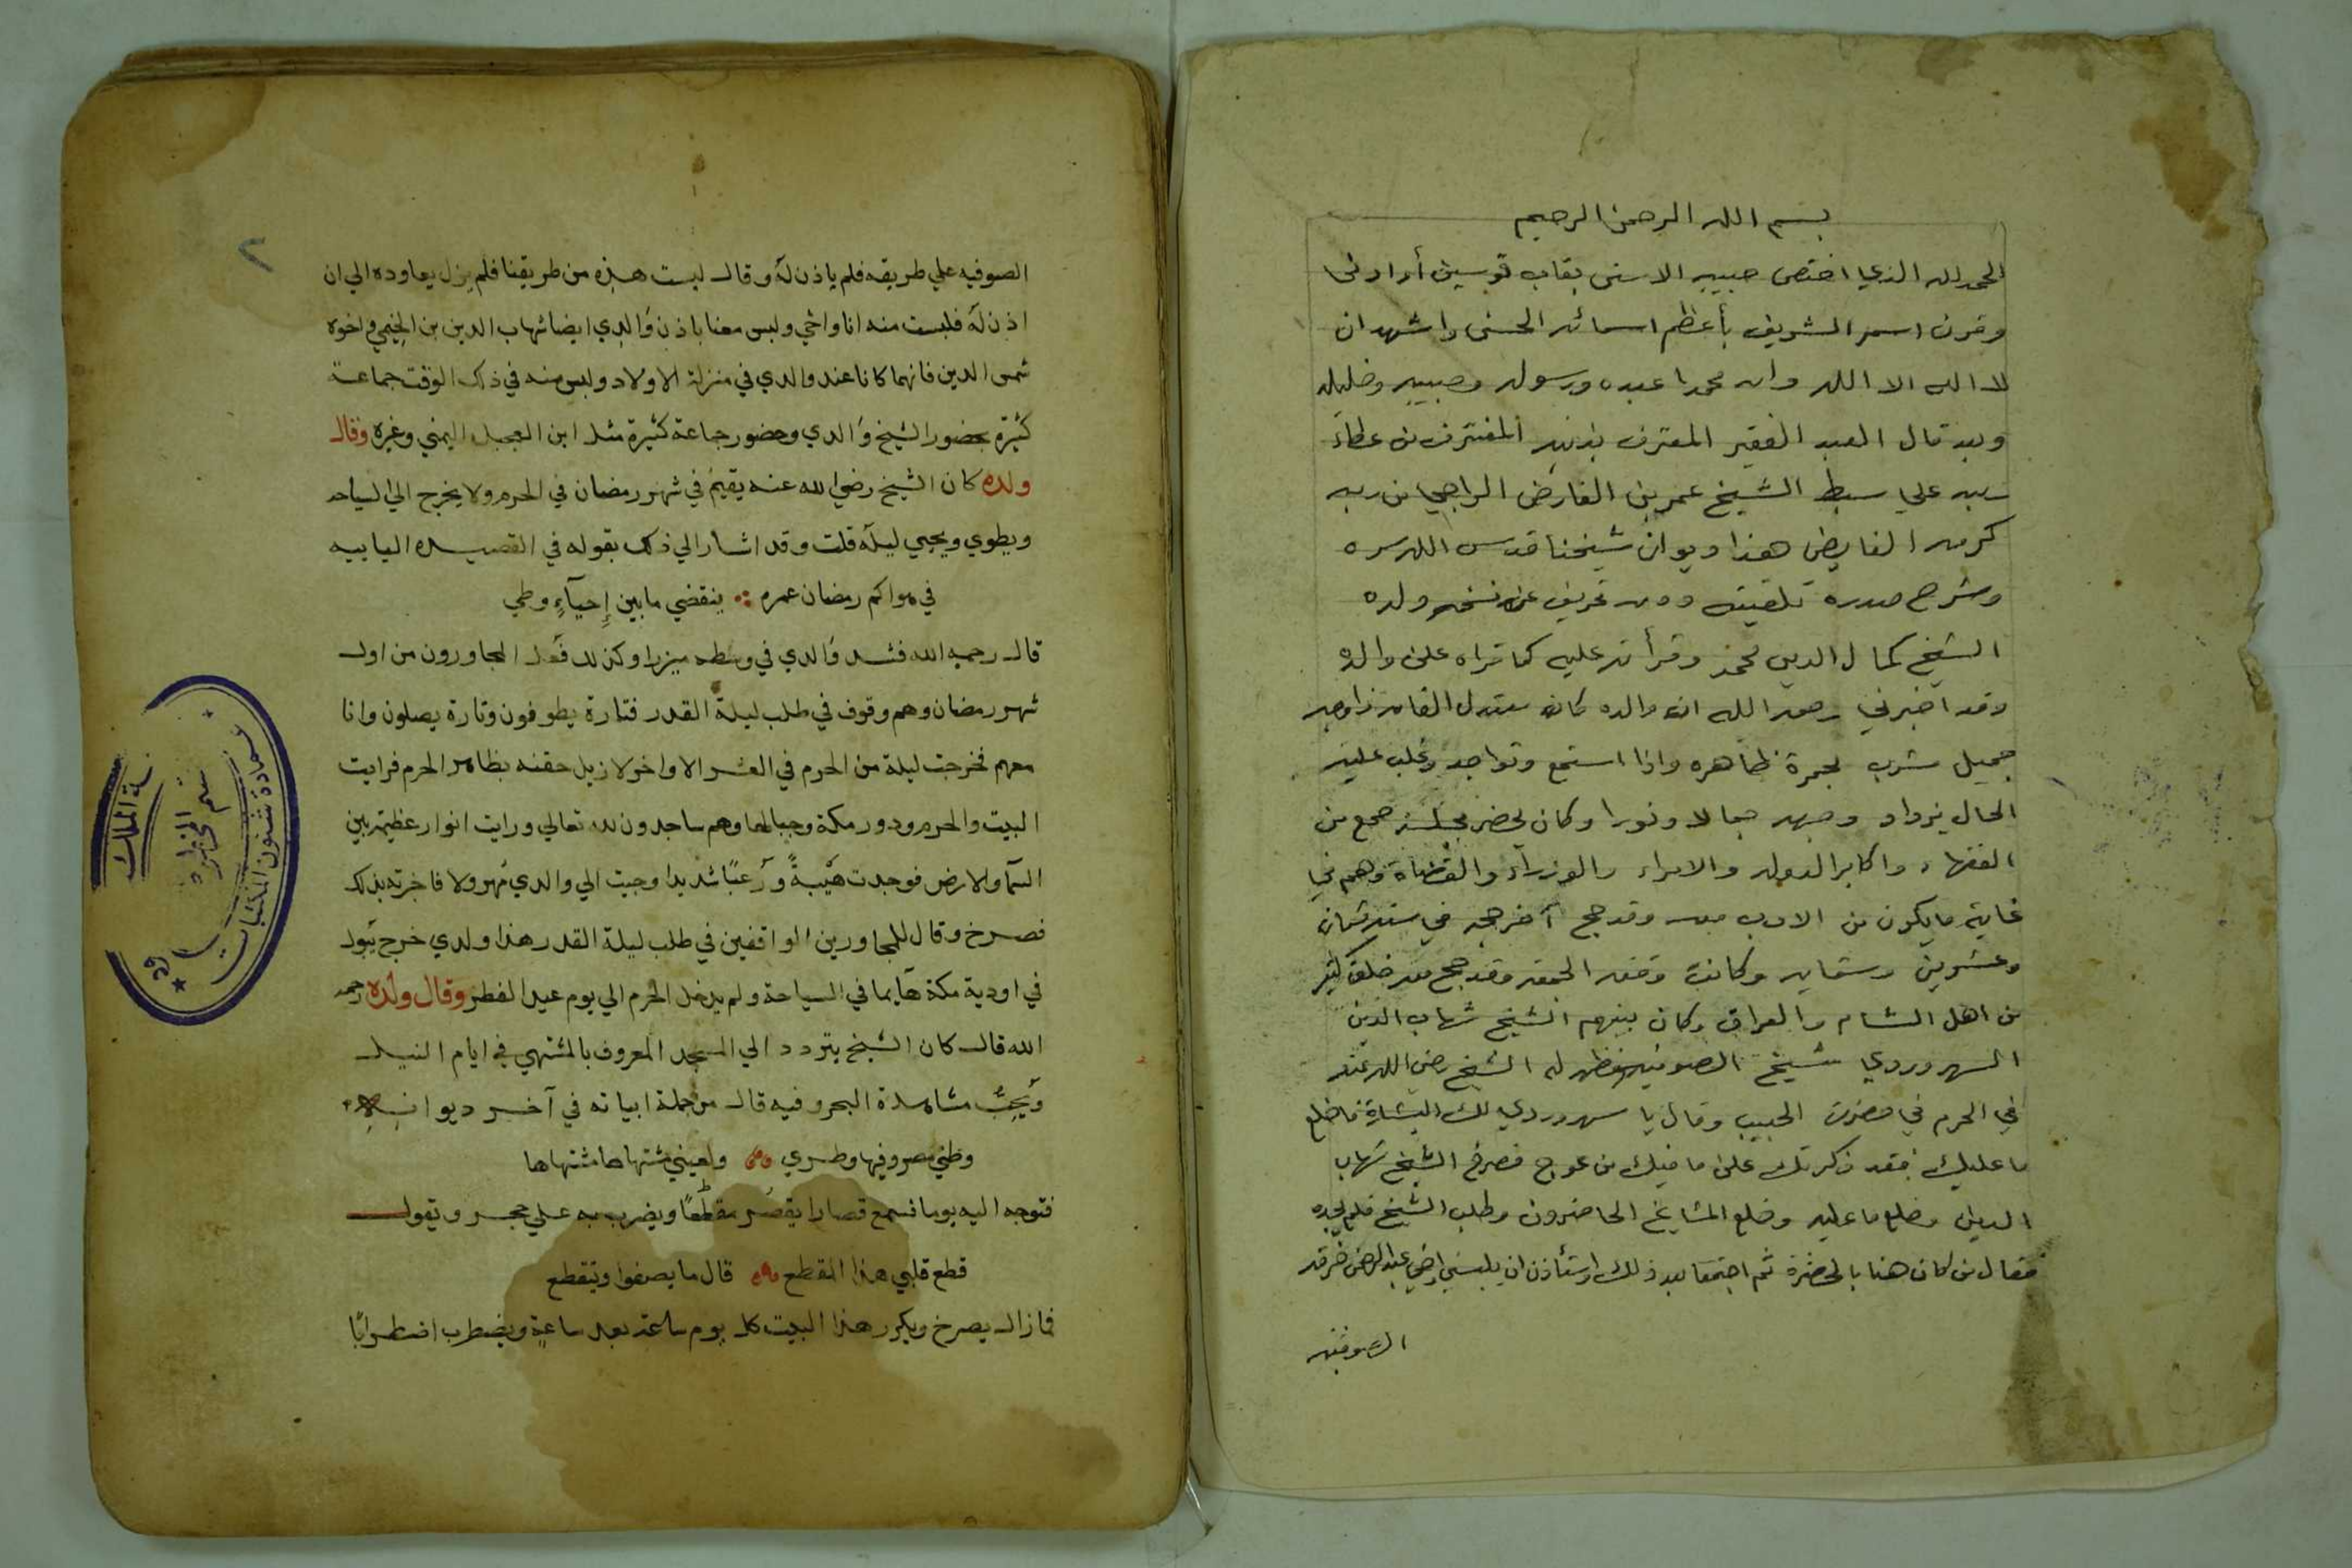 بسم الله الرحمن الرحيم
الحمد لله الذي اختص حبيبه الاسنى بقاب قوسين أو ادنى
وقرن اسمه الشريف بأعظم اسمائه الحسنى واشهد ان
لا اله الا الله وان محمدا عبده ورسوله وحبيبه وخليله
وبعد قال العبد الفقير المعترف بذنبه المغترف من عطاء
ربه علي سبط الشيخ عمر بن الفارض الراجي من ربه
كرمه الفايض هذا ديوان شيخنا قدس الله سره
وشرح صدره تلقيته دون تحريف عن نسخة ولده
الشيخ كمال الدين محمد وقرأته عليه كما قراه على والده
وقد أخبرني رحمه الله ان والده كان معتدل القامة ذا وجه
جميل مشرب بحمرة ظاهره واذا استمع وتواجد وغلب عليه
الحال يزداد وجهه جمالا ونورا وكان يحضر مجلسه جمع من
الفقهاء واكابر الدوله والامراء والوزراء والقضاة وهم في
غاية ما يكون من الادب معه وقد حج آخر حجه في سنة ثمان
وعشرين وستمايه وكانت وقفة الجمعه وقد حج معه خلق كثير
من اهل الشام والعراق وكان بينهم الشيخ شهاب الدين
السهروردي شيخ الصوفيه فظهر له الشيخ رضي الله عنه
في الحرم في حضرت الحبيب وقال يا سهروردي لك البشارة فاخلع
ما عليك فقد ذكرت على ما فيك من عوج فصرخ الشيخ شهاب
الدين وخلع ما عليه وخلع المشايخ الحاضرون وطلب الشيخ فلم يجده
فقال من كان هنا بالحضرة ثم اجتمعا بعد ذلك واستأذن ان يلبسني واخي عبد الرحمن خرقه
الصوفيه
٢
الصوفيه علي طريقه فلم ياذن له وقال ليست هذه من طريقنا فلم يزل يعاوده الي ان
اذن له فلبست منه انا واخي ولبس معنا باذن والدي ايضا شهاب الدين بن الخيمي واخوه
شمس الدين فانهما كانا عند والدي في منزلة الاولاد ولبس منه في ذلك الوقت جماعة
كثيرة بحضور الشيخ والدي وحضور جماعة كثيرة مثل ابن العجيل اليمني وغيره وقال
ولده كان الشيخ رضي الله عنه يقيم في شهر رمضان في الحرم ولا يخرج الي السياحه
ويطوي ويحيي ليله قلت وقد اشار الي ذلك بقوله في القصيده اليابيه
في هواكم رمضان عمره ينقضي ما بين إحياء وطي
قال رحمه الله فشد والدي في وسطه ميزرا وكذلك فعل المجاورون من اول
شهر رمضان وهم وقوف في طلب ليلة القدر فتارة يطوفون وتارة يصلون وانا
معهم فخرجت ليلة من الحرم في العشر الاواخر لازيل حقنه بظاهر الحرم فرايت
البيت والحرم ودور مكة وجبالها وهم ساجدون لله تعالي ورايت انوار عظيمه بين
السما والارض فوجدت هيبة ورعبا شديدا وجيت الي والدي مهرولا فاخبرته بذلك
فصرخ وقال للمجاورين الواقفين في طلب ليلة القدر هذا ولدي خرج يبول
في اودية مكة هايما في السياحة ولم يدخل الحرم الي يوم عيد الفطر وقال ولده رحمه
الله قال كان الشيخ يتردد الي المسجد المعروف بالمشتهي في ايام النيل
ويحب مشاهدة البحر وفيه قال من جملة ابياته في آخر ديوانه
وطني مصر وفيها وطري ولعيني مشتهاها مشتهاها
فتوجه اليه يوما فسمع قصارا يقصر مقطعا ويضرب به علي حجر ويقول
قطع قلبي هذا المقطع قال ما يصفوا ويتقطع
فما زال يصرخ ويكرر هذا البيت كل يوم ساعة بعد ساعة ويضطرب اضطرابا
عمادة شئون المكتبات